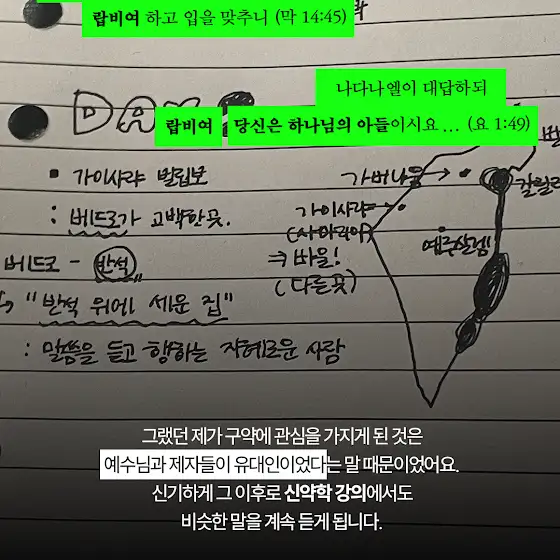 랍비여 하고 입을 맞추니 (막 14:45)
나다나엘이 대답하되
랍비여 당신은 하나님의 아들이시요... (요 1:49)
DAY
▪ 가이사랴 빌립보
: 베드로가 고백한 곳.
베드로 - 반석
↳ "반석 위에 세운 집"
: 말씀을 듣고 행하는 지혜로운 사람
가버나움 →
갈릴리
가이샤랴
(사마리아)
⇒ 바울!
(다른 곳)
예루살렘
그랬던 제가 구약에 관심을 가지게 된 것은
예수님과 제자들이 유대인이었다는 말 때문이었어요.
신기하게 그 이후로 신약학 강의에서도
비슷한 말을 계속 듣게 됩니다.